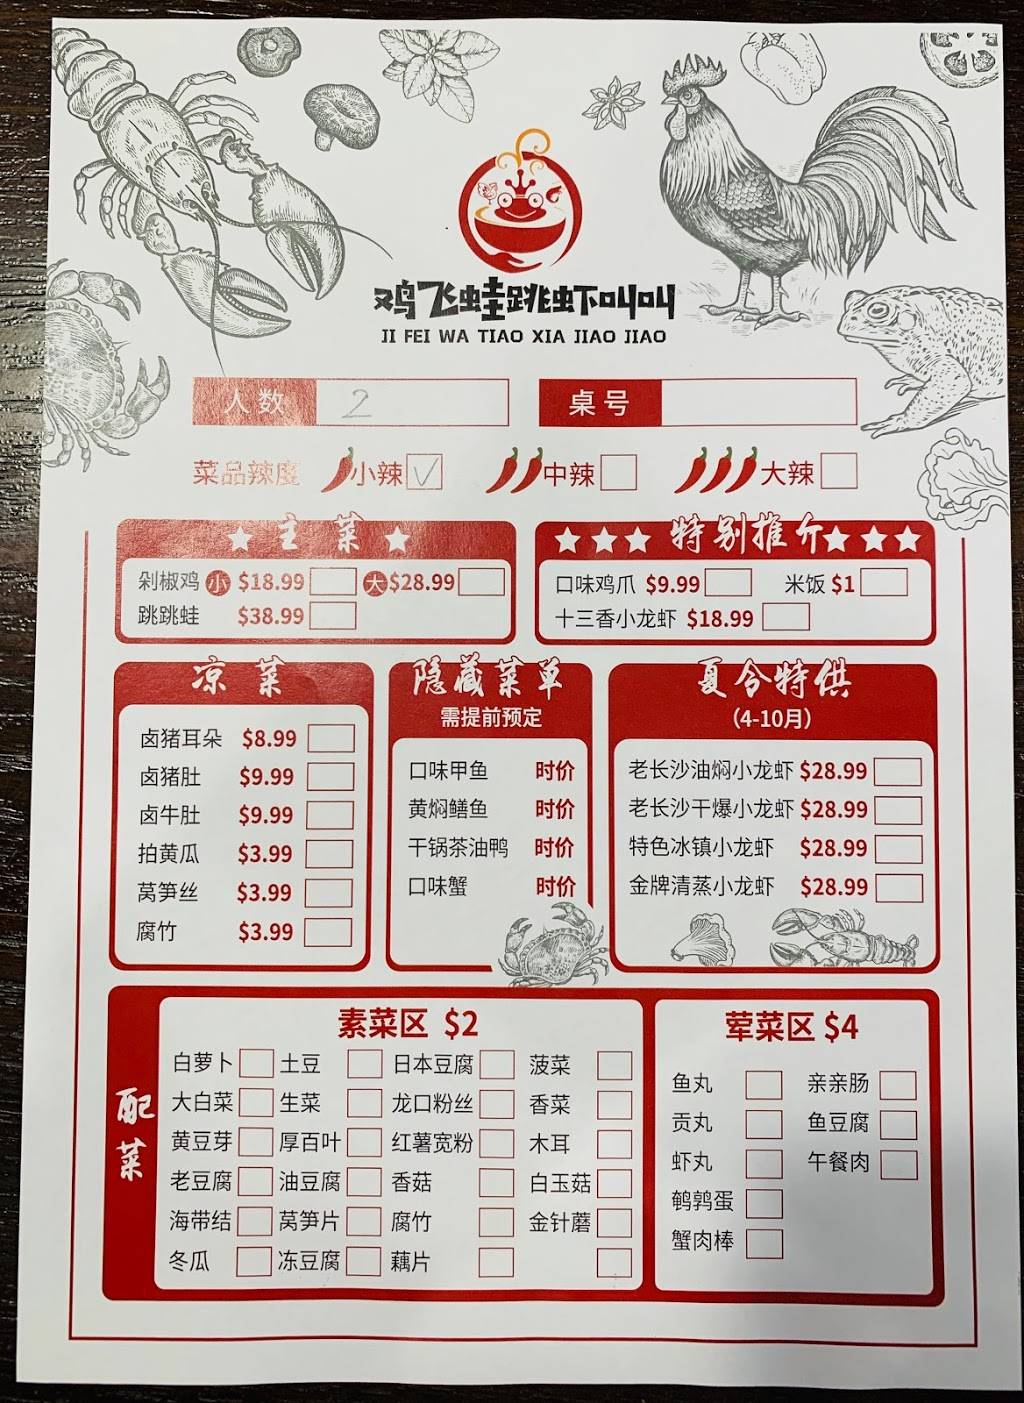 鸡飞蛙跳虾叫叫
JI FEI WA TIAO XIA JIAO JIAO
人数 2 桌号
菜品辣度 小辣 ✓ 中辣 大辣
主菜
剁椒鸡 小 $18.99 大 $28.99
跳跳蛙 $38.99
特别推介
口味鸡爪 $9.99 米饭 $1
十三香小龙虾 $18.99
凉菜
卤猪耳朵 $8.99
卤猪肚 $9.99
卤牛肚 $9.99
拍黄瓜 $3.99
莴笋丝 $3.99
腐竹 $3.99
隐藏菜单
需提前预定
口味甲鱼 时价
黄焖鳝鱼 时价
干锅茶油鸭 时价
口味蟹 时价
夏令特供
(4-10月)
老长沙油焖小龙虾 $28.99
老长沙干爆小龙虾 $28.99
特色冰镇小龙虾 $28.99
金牌清蒸小龙虾 $28.99
配菜
素菜区 $2
白萝卜 土豆 日本豆腐 菠菜
大白菜 生菜 龙口粉丝 香菜
黄豆芽 厚百叶 红薯宽粉 木耳
老豆腐 油豆腐 香菇 白玉菇
海带结 莴笋片 腐竹 金针蘑
冬瓜 冻豆腐 藕片
荤菜区 $4
鱼丸 亲亲肠
贡丸 鱼豆腐
虾丸 午餐肉
鹌鹑蛋
蟹肉棒